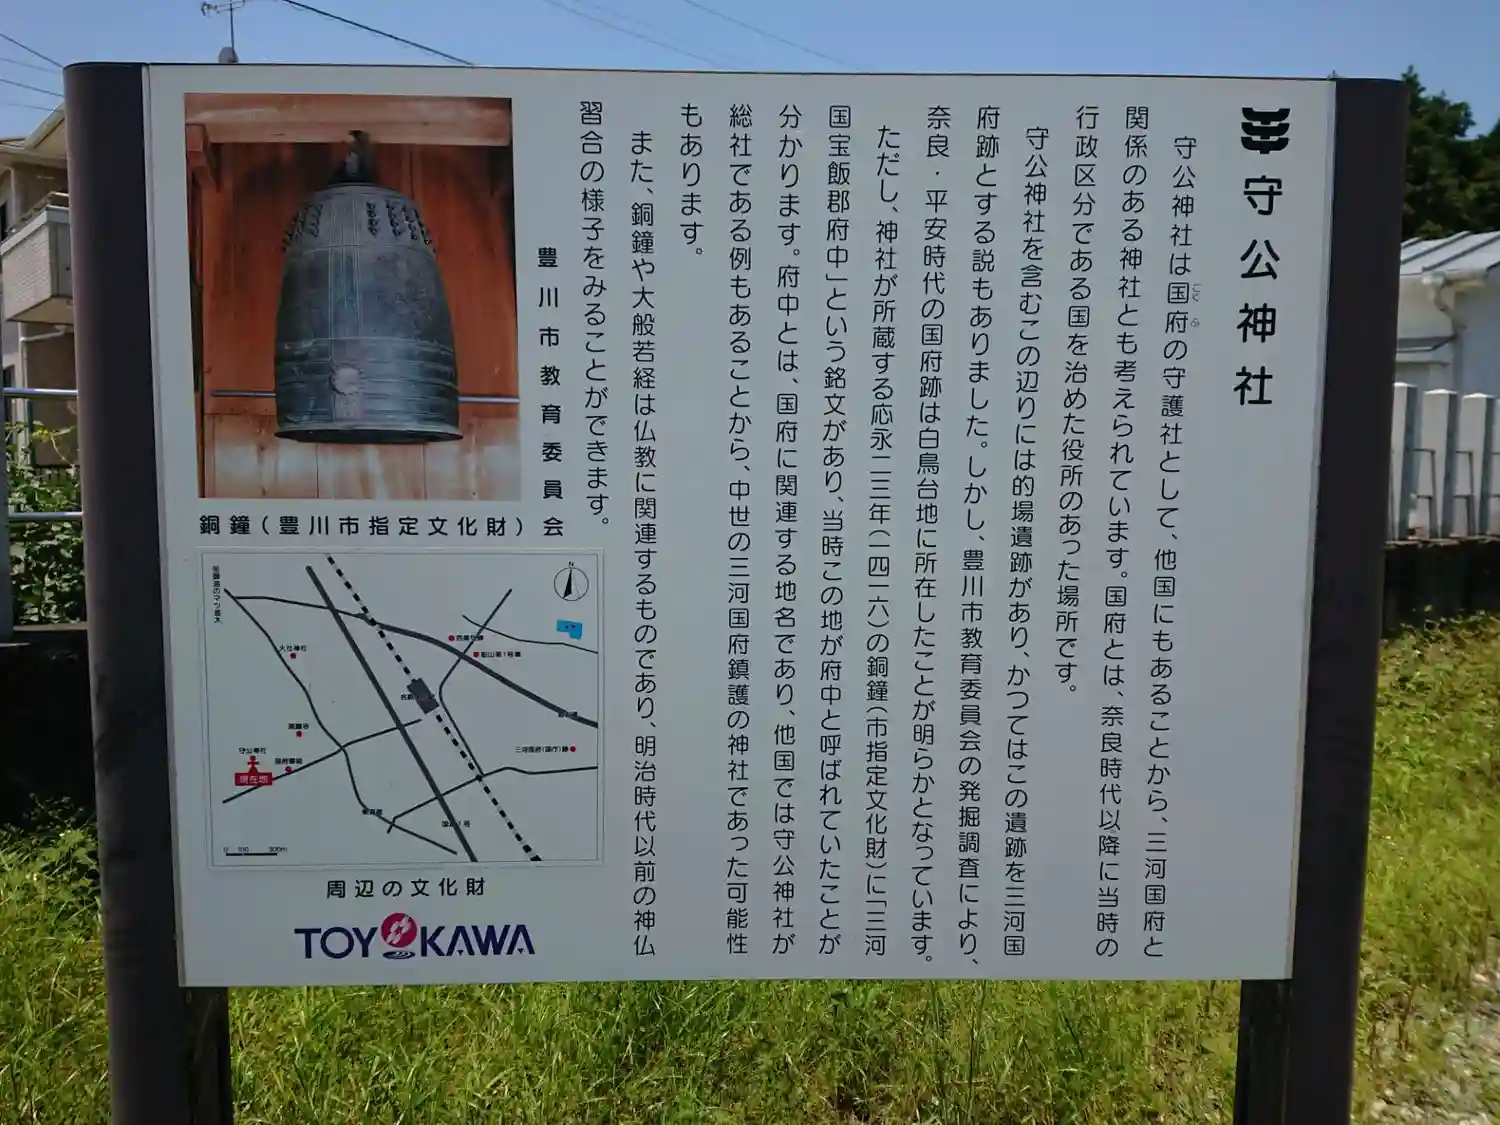 守公神社
守公神社は国府の守護社として、他国にもあることから、三河国府と
こくふ
関係のある神社とも考えられています。国府とは、奈良時代以降に当時の
行政区分である国を治めた役所のあった場所です。
守公神社を含むこの辺りには的場遺跡があり、かつてはこの遺跡を三河国
府跡とする説もありました。しかし、豊川市教育委員会の発掘調査により、
奈良・平安時代の国府跡は白鳥台地に所在したことが明らかとなっています。
ただし、神社が所蔵する応永二三年(一四一六)の銅鐘(市指定文化財)に「三河
国宝飯郡府中」という銘文があり、当時この地が府中と呼ばれていたことが
分かります。府中とは、国府に関連する地名であり、他国では守公神社が
総社である例もあることから、中世の三河国府鎮護の神社であった可能性
もあります。
また、銅鐘や大般若経は仏教に関連するものであり、明治時代以前の神仏
習合の様子をみることができます。
豊川市教育委員会
銅鐘(豊川市指定文化財)
N
御油のマツ並木
大社神社
船山第1号墳
守公神社
現在地
三河国府(国庁)跡
国道1号
0 100 300m
周辺の文化財
TOYOKAWA